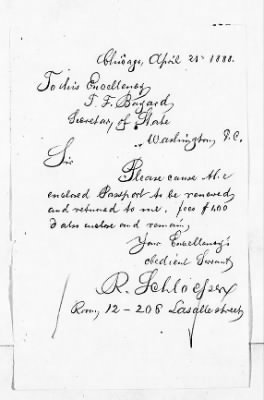 Chicago, April 25th 1888.
To his Excellency
T. F. Bayard
Secretary of State
Washington, D.C.
Sir
Please cause the
enclosed Passport to be renewed
and returned to me. fees $1.00
I also enclose and remain
Your Excellency's
obedient Servant
R. Schloesser
Room, 12 - 206 Lasalle street